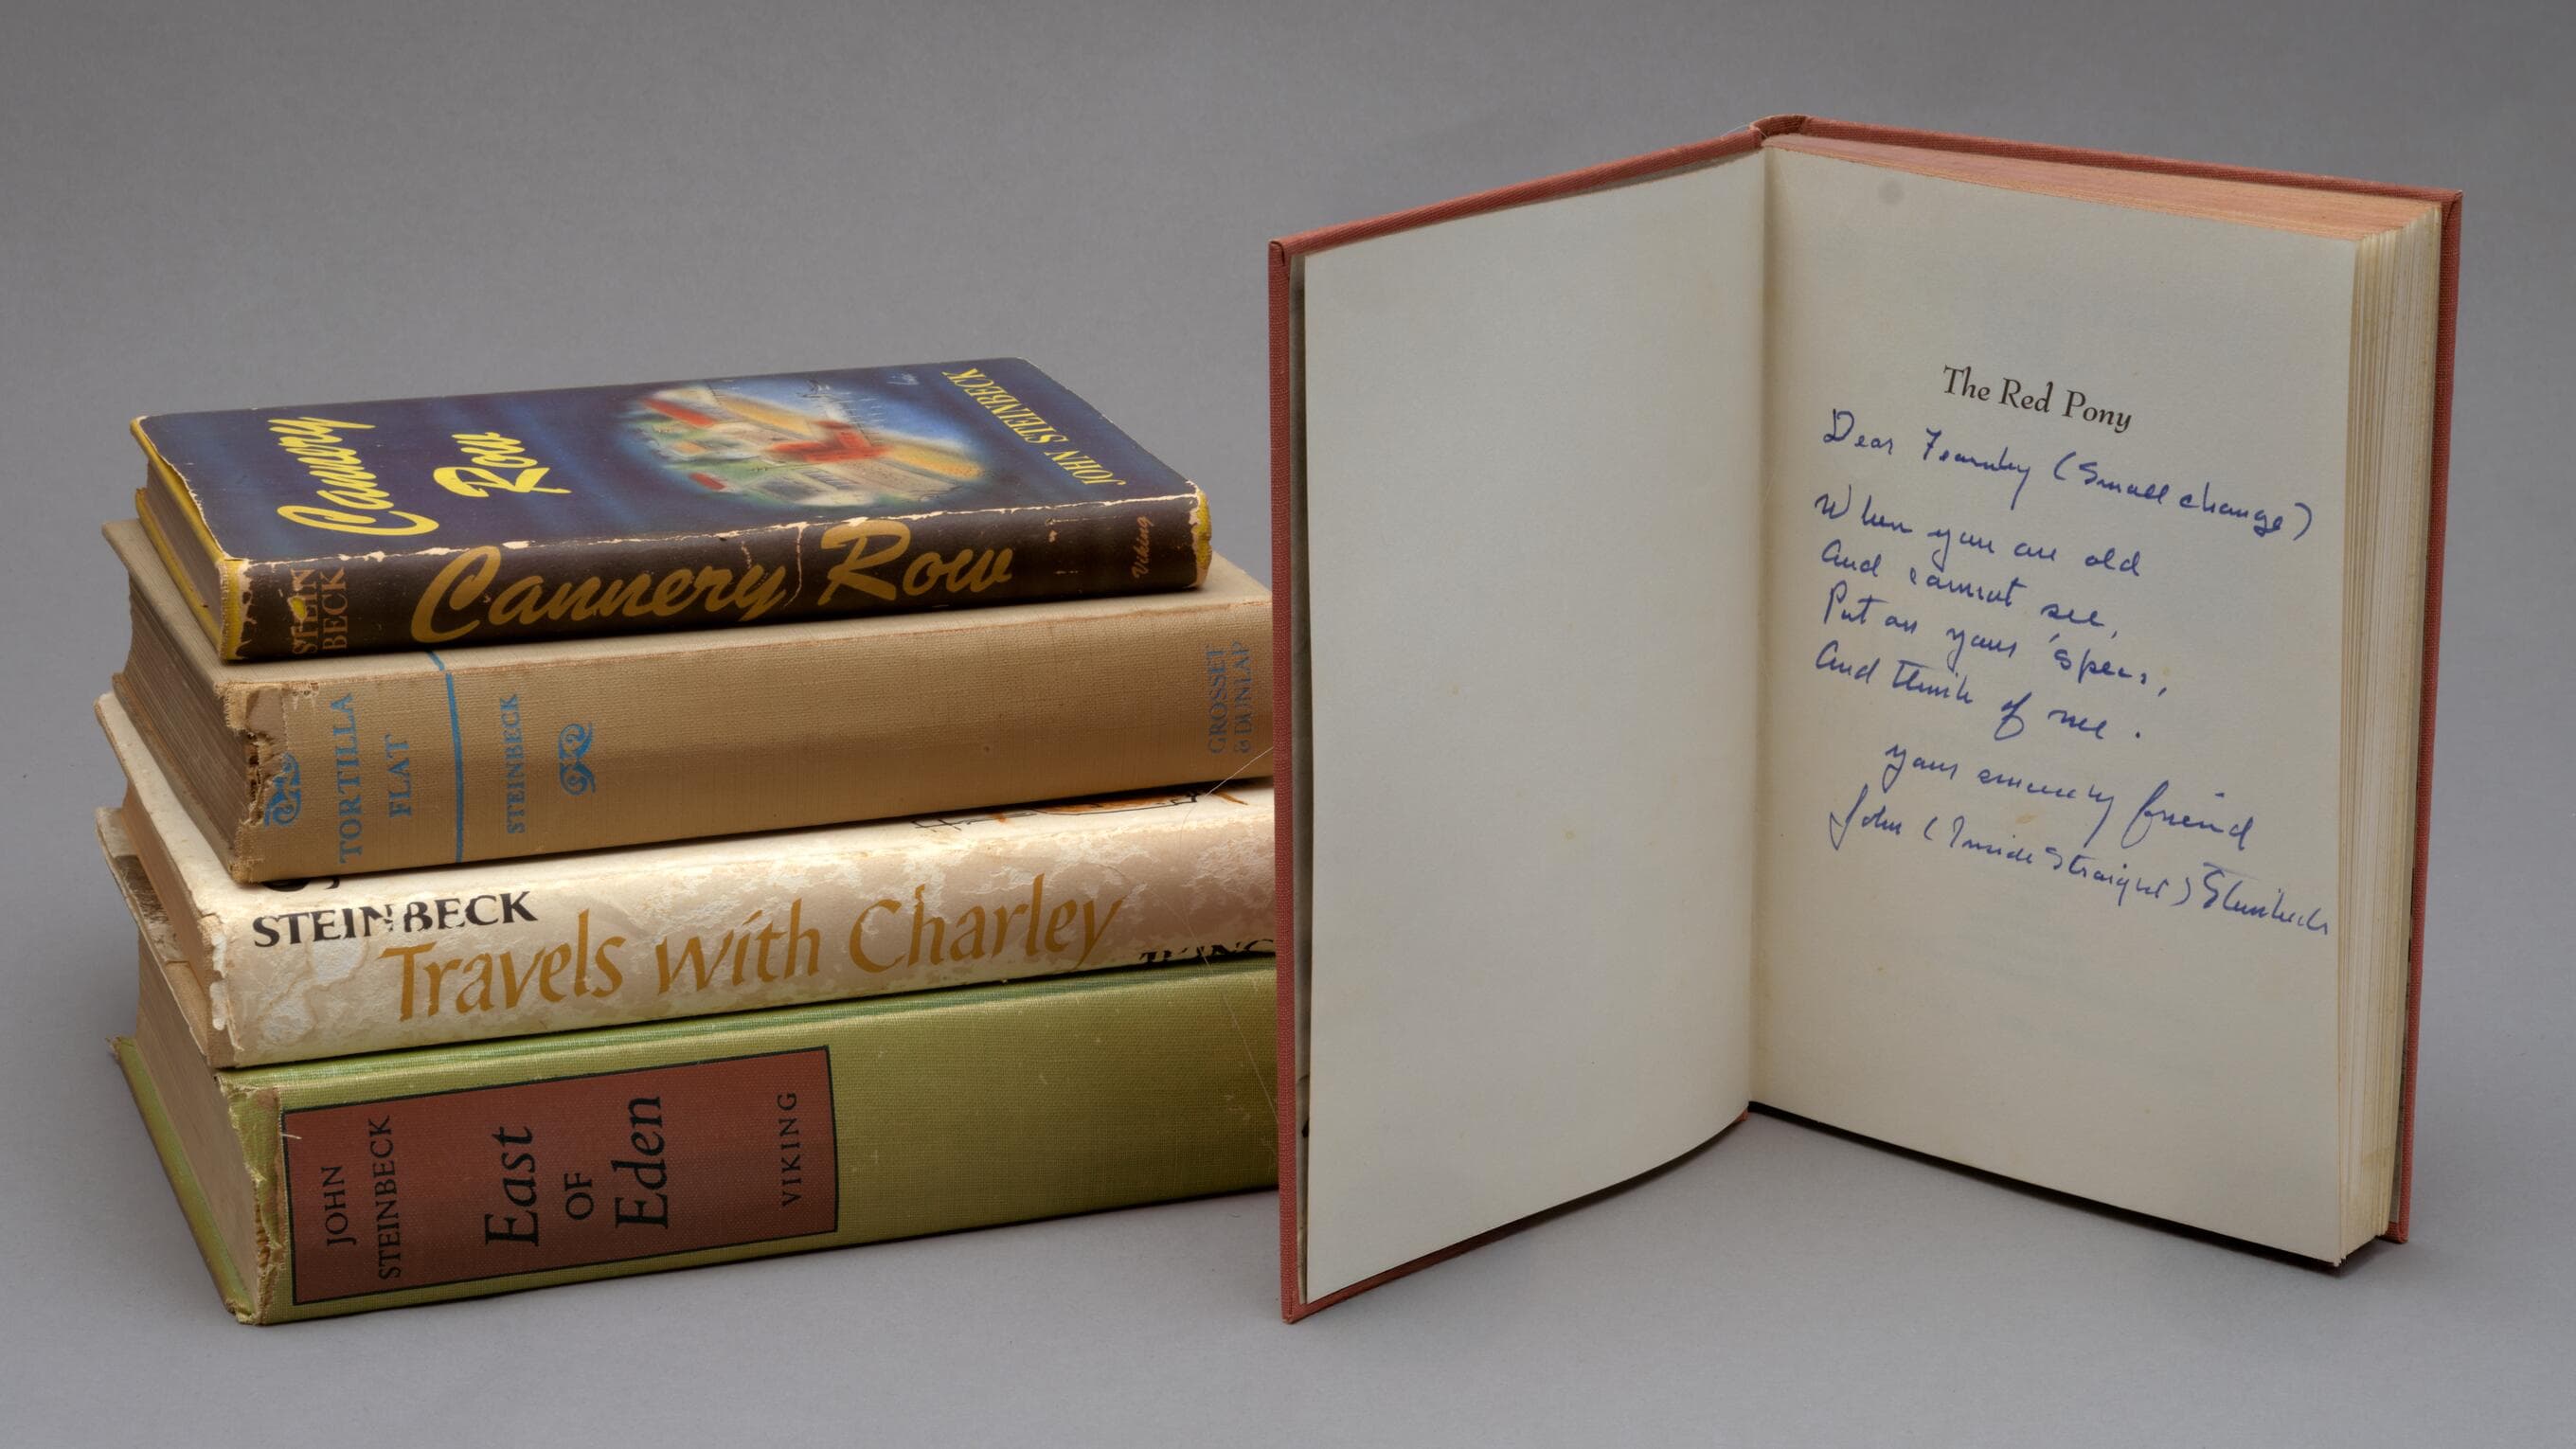 Cannery
Row
JOHN STEINBECK
STEIN
BECK
Cannery Row
Viking
TORTILLA
FLAT
STEINBECK
GROSSET
& DUNLAP
STEINBECK
Travels with Charley
JOHN
STEINBECK
East
OF
Eden
VIKING
The Red Pony
Dear (Small change)
When you are old
And cannot see,
Put on your 'specs,
And think of me.
your sincerely friend
John (Inside Straight) Steinbeck